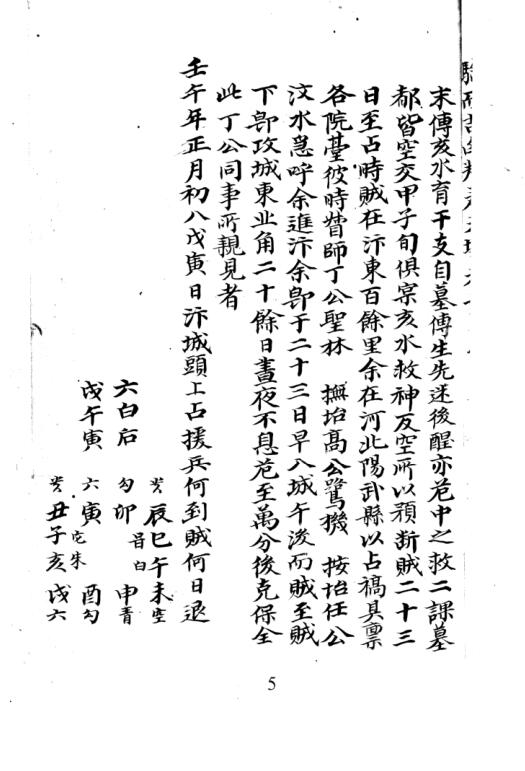 末傳亥水育干支自墓傳生先迷後醒亦危中之救二課墓
都皆空交甲子旬俱寔亥水救神反空所以預斷賊二十三
日至占時賊在汴東百餘里余在河北陽武縣以占禍具稟
各院臺彼時督師丁公聖林 撫治高公鷺機 按治任公
汶水急呼余進汴余即于二十三日早入城午後而賊至賊
下即攻城東北角二十餘日晝夜不息危至萬分後克保全
此丁公同事所親見者
壬午年正月初八戊寅日汴城頭上占援兵何到賊何日退
癶辰巳午未空
六白后 勾卯 昌白 申青
戊午寅 六寅 酉勾
蛇朱
癶丑子亥戌六
5